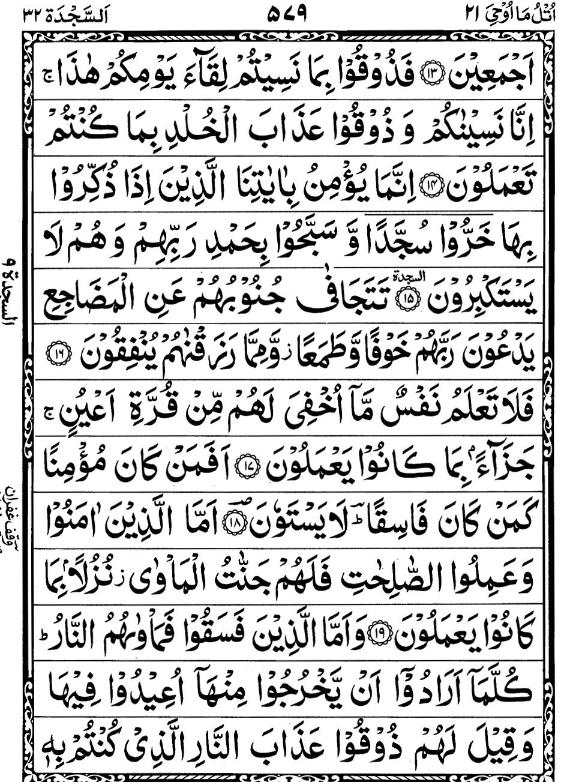 اُتْلُ مَا اُوْحِیَ ٢١ ۵٧٩ اَلسَّجْدَة ٣٢
اَجْمَعِیْنَ ﴿١٣﴾ فَذُوْقُوْا بِمَا نَسِیْتُمْ لِقَآءَ یَوْمِكُمْ هٰذَا ۚ
اِنَّا نَسِیْنٰكُمْ وَ ذُوْقُوْا عَذَابَ الْخُلْدِ بِمَا كُنْتُمْ
تَعْمَلُوْنَ ﴿١٤﴾ اِنَّمَا یُؤْمِنُ بِاٰیٰتِنَا الَّذِیْنَ اِذَا ذُكِّرُوْا
بِهَا خَرُّوْا سُجَّدًا وَّ سَبَّحُوْا بِحَمْدِ رَبِّهِمْ وَ هُمْ لَا
یَسْتَكْبِرُوْنَ ﴿١٥﴾ السجدة تَتَجَافٰی جُنُوْبُهُمْ عَنِ الْمَضَاجِعِ
یَدْعُوْنَ رَبَّهُمْ خَوْفًا وَّ طَمَعًا ز وَّ مِمَّا رَزَقْنٰهُمْ یُنْفِقُوْنَ ﴿١٦﴾
فَلَا تَعْلَمُ نَفْسٌ مَّاۤ اُخْفِیَ لَهُمْ مِّنْ قُرَّةِ اَعْیُنٍ ۚ
جَزَآءًۢ بِمَا كَانُوْا یَعْمَلُوْنَ ﴿١٧﴾ اَفَمَنْ كَانَ مُؤْمِنًا
كَمَنْ كَانَ فَاسِقًا ؕ لَا یَسْتَوٗنَ ﴿١٨﴾ اَمَّا الَّذِیْنَ اٰمَنُوْا
وَ عَمِلُوا الصّٰلِحٰتِ فَلَهُمْ جَنّٰتُ الْمَاْوٰی ز نُزُلًۢا بِمَا
كَانُوْا یَعْمَلُوْنَ ﴿١٩﴾ وَ اَمَّا الَّذِیْنَ فَسَقُوْا فَمَاْوٰىهُمُ النَّارُ ؕ
كُلَّمَاۤ اَرَادُوْۤا اَنْ یَّخْرُجُوْا مِنْهَاۤ اُعِیْدُوْا فِیْهَا
وَ قِیْلَ لَهُمْ ذُوْقُوْا عَذَابَ النَّارِ الَّذِیْ كُنْتُمْ بِهٖ
السجدة ٩
وقف غفران